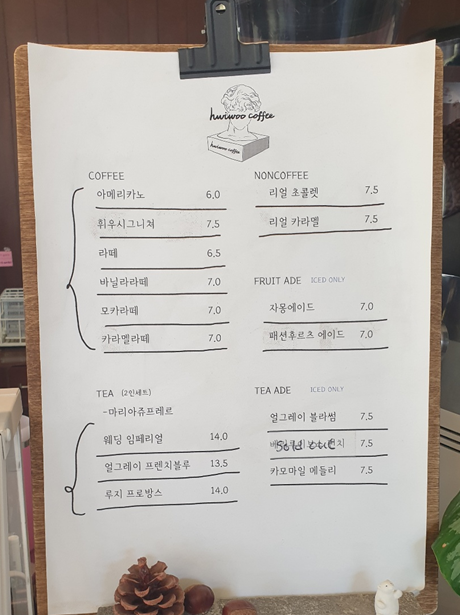 hwiwoo coffee
hwiwoo coffee
COFFEE
아메리카노 6.0
휘우시그니쳐 7.5
라떼 6.5
바닐라라떼 7.0
모카라떼 7.0
카라멜라떼 7.0
NONCOFFEE
리얼 초콜렛 7.5
리얼 카라멜 7.5
FRUIT ADE ICED ONLY
자몽에이드 7.0
패션후르츠 에이드 7.0
TEA (2인세트)
-마리아쥬프레르
웨딩 임페리얼 14.0
얼그레이 프렌치블루 13.5
루지 프로방스 14.0
TEA ADE ICED ONLY
얼그레이 블라썸 7.5
Sold out 7.5
카모마일 메들리 7.5